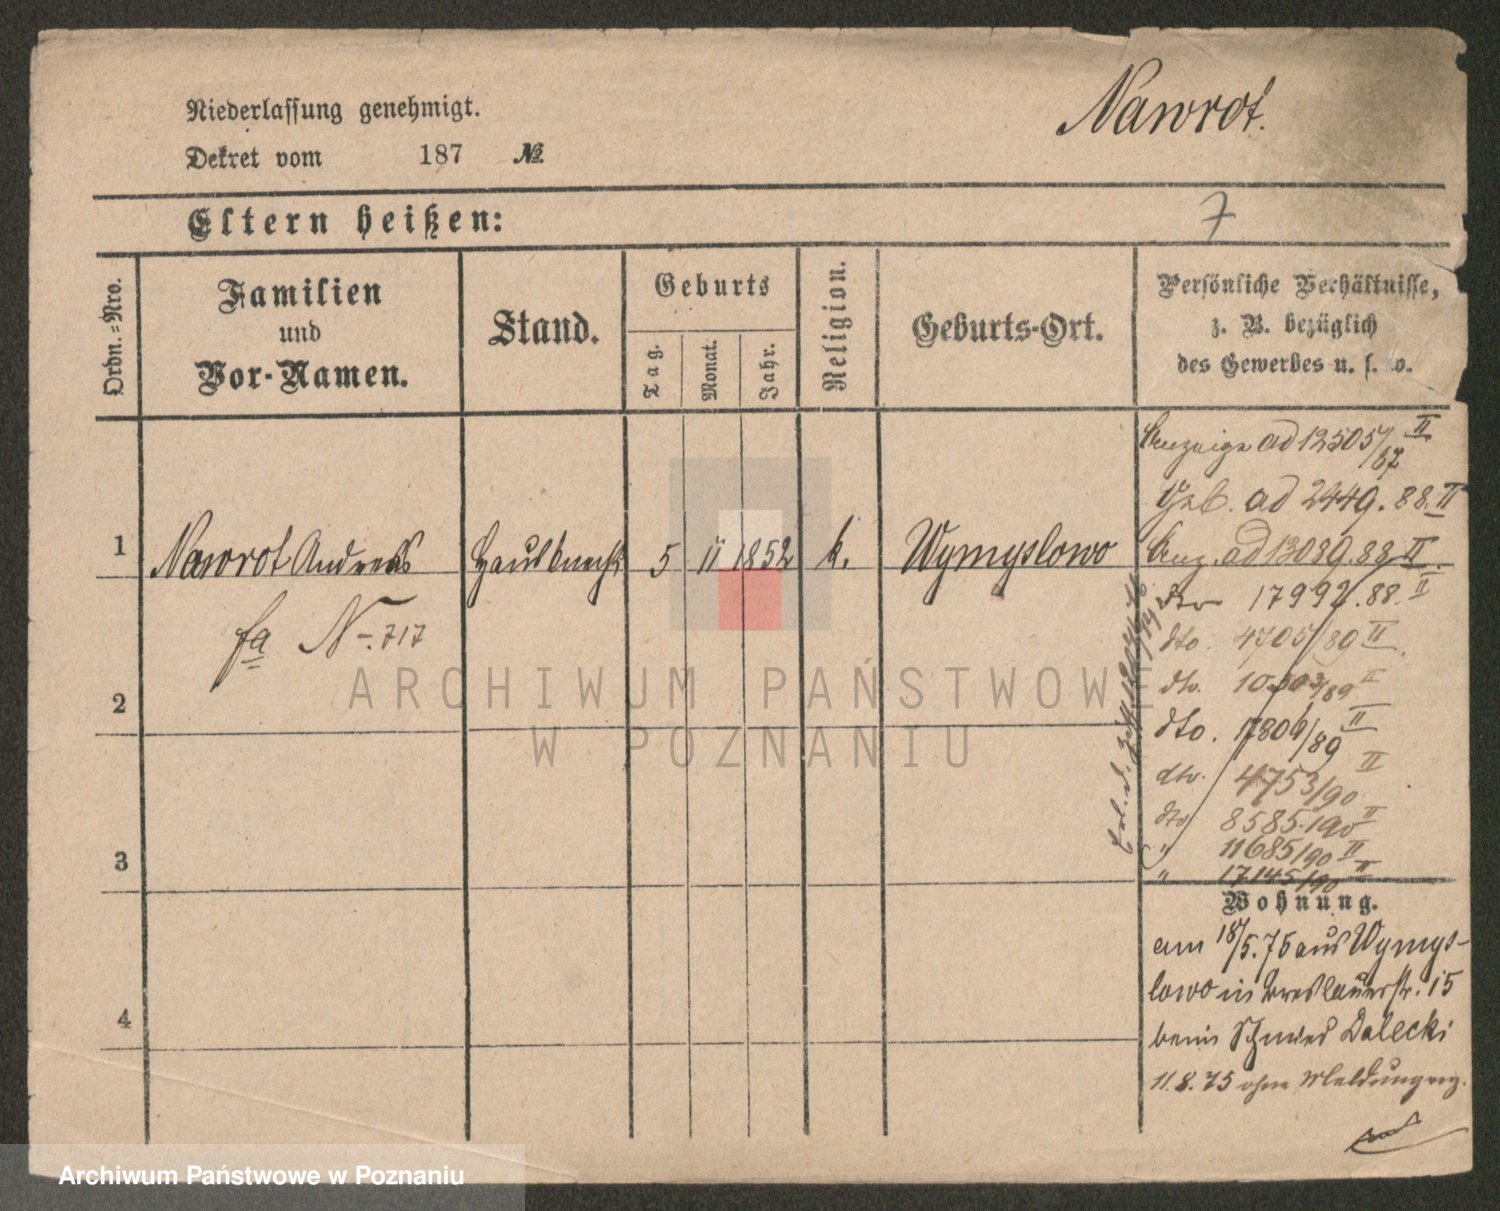 Niederlassung genehmigt.
Nawrot.
Dekret vom 187 №
Eltern heißen:
7
Ordn.=Nro.
Familien
und
Vor-Namen.
Stand.
Geburts
Tag.
Monat.
Jahr.
Religion.
Geburts-Ort.
Persönliche Verhältnisse,
z. B. bezüglich
des Gewerbes u. s. w.
Anzeige ad 12505/87 II
Geb. ad 2449. 88. II
1 Nawrot Andreas Hausknecht 5 11 1852 k. Wymyslowo Anz. ad 13089. 88 II
dto 17992. 88. II
fa N-. 717
dto. 4705/89 II
2
dto. /89 II
dto. 17806/89 II
dto. 4753/90 II
dto 8585. 90 II
3
" 11685/90 II
" 17145/90 II
Wohnung.
am 18/5. 75 aus Wymys-
lowo in Breslauerstr. 15
4
beim Schmied Dalecki
11. 8. 75 ohne
ARCHIWUM PAŃSTWOWE
W POZNANIU
Archiwum Państwowe w Poznaniu